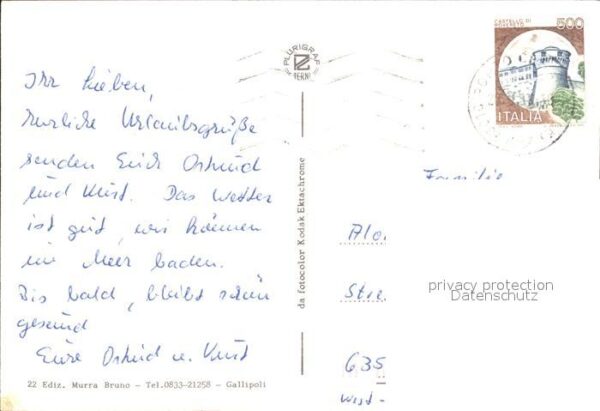 Ihr Lieben,
herzliche Urlaubsgrüße
senden Euch Ostrud
und Kurt. Das Wetter
ist gut, wir können
im Meer baden.
Bis bald, bleibt schön
gesund
Eure Ostrud u. Kurt
22 Ediz. Murra Bruno - Tel.0833-21258 - Gallipoli
PLURIGRAF
TERNI
da fotocolor Kodak Ektachrome
CASTELLO DI
ROVERETO
500
ITALIA
Familie
Alo.
Stre
privacy protection
Datenschutz
635
West-